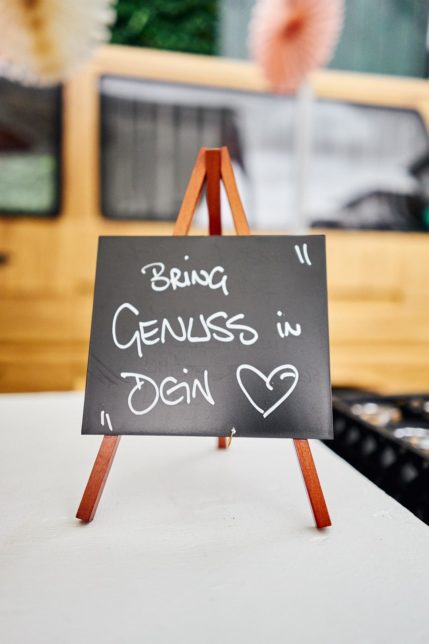 Bring "
Genuss in
" Dein ♡